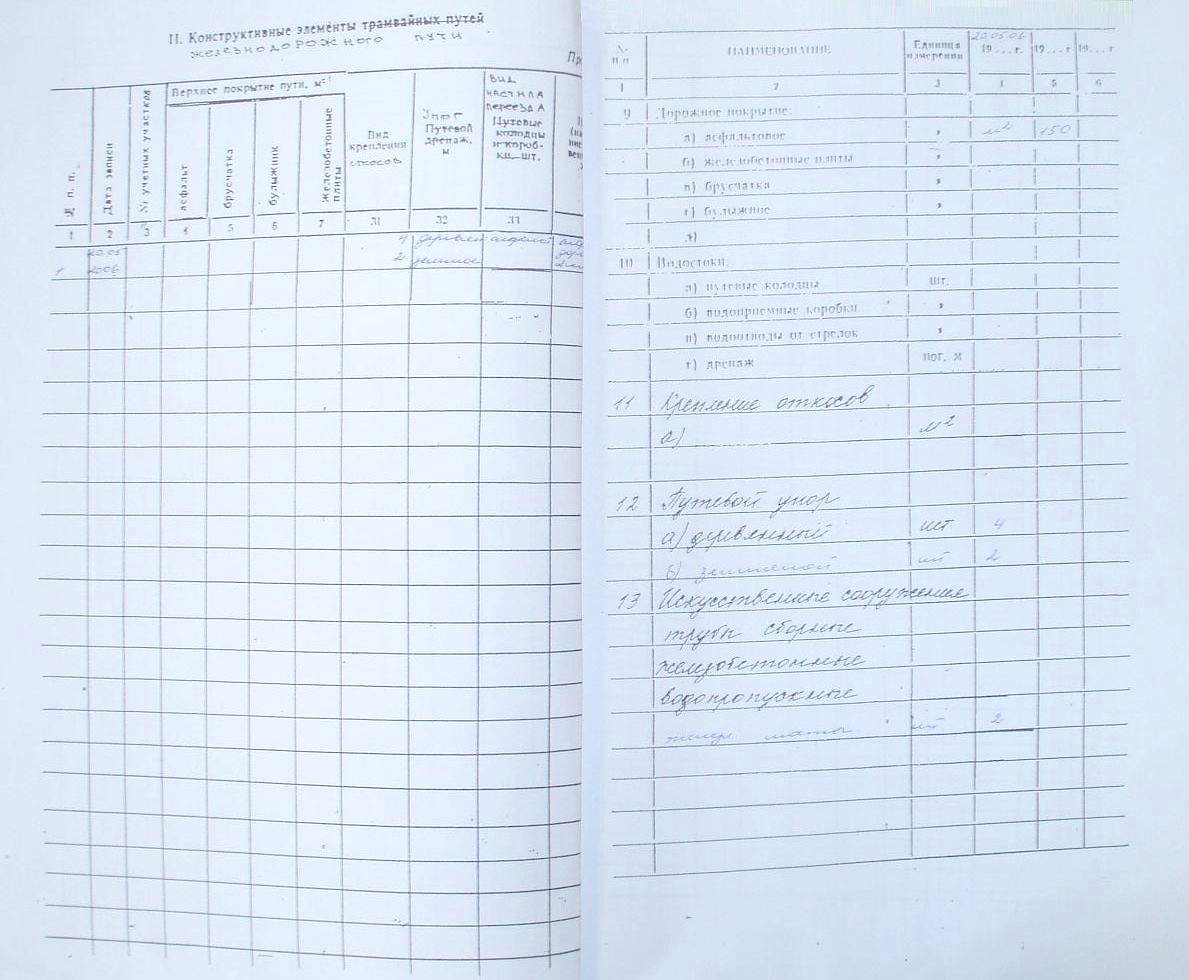 II. Конструктивные элементы трамвайных путей
железнодорожного пути
№ п. п.
Дата записи
№ учетных участков
Верхнее покрытие пути, м²
асфальт
брусчатка
булыжник
железобетонные плиты
Вид крепления откосов
Упор
Путевой дренаж, м
Вид настила переезда
Путевые колодцы и короб-ки, шт.
1 2 3 4 5 6 7 31 32 33
20.05
1 2006
4
2
№ п п
НАИМЕНОВАНИЕ
Единица измерения
20.05.06
19...г. 19...г 19...г
1 2 3 4 5 6
9 Дорожное покрытие:
а) асфальтовое " м² 150
б) железобетонные плиты "
в) брусчатка "
г) булыжное "
д)
10 Водостоки:
а) путевые колодцы шт.
б) водоприемные коробки "
в) водоотводы от стрелок "
г) дренаж пог. м
11 Крепление откосов
а) м²
12 Путевой упор
а) деревянный шт 4
б) земляной шт 2
13 Искусственные сооружения
трубы сборные
железобетонные
водопропускные
шт 2